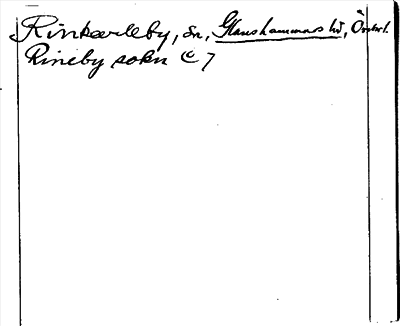 Rinkarleby, sn, Glanshammars hd, Örebro l.
Rineby sokn C 7